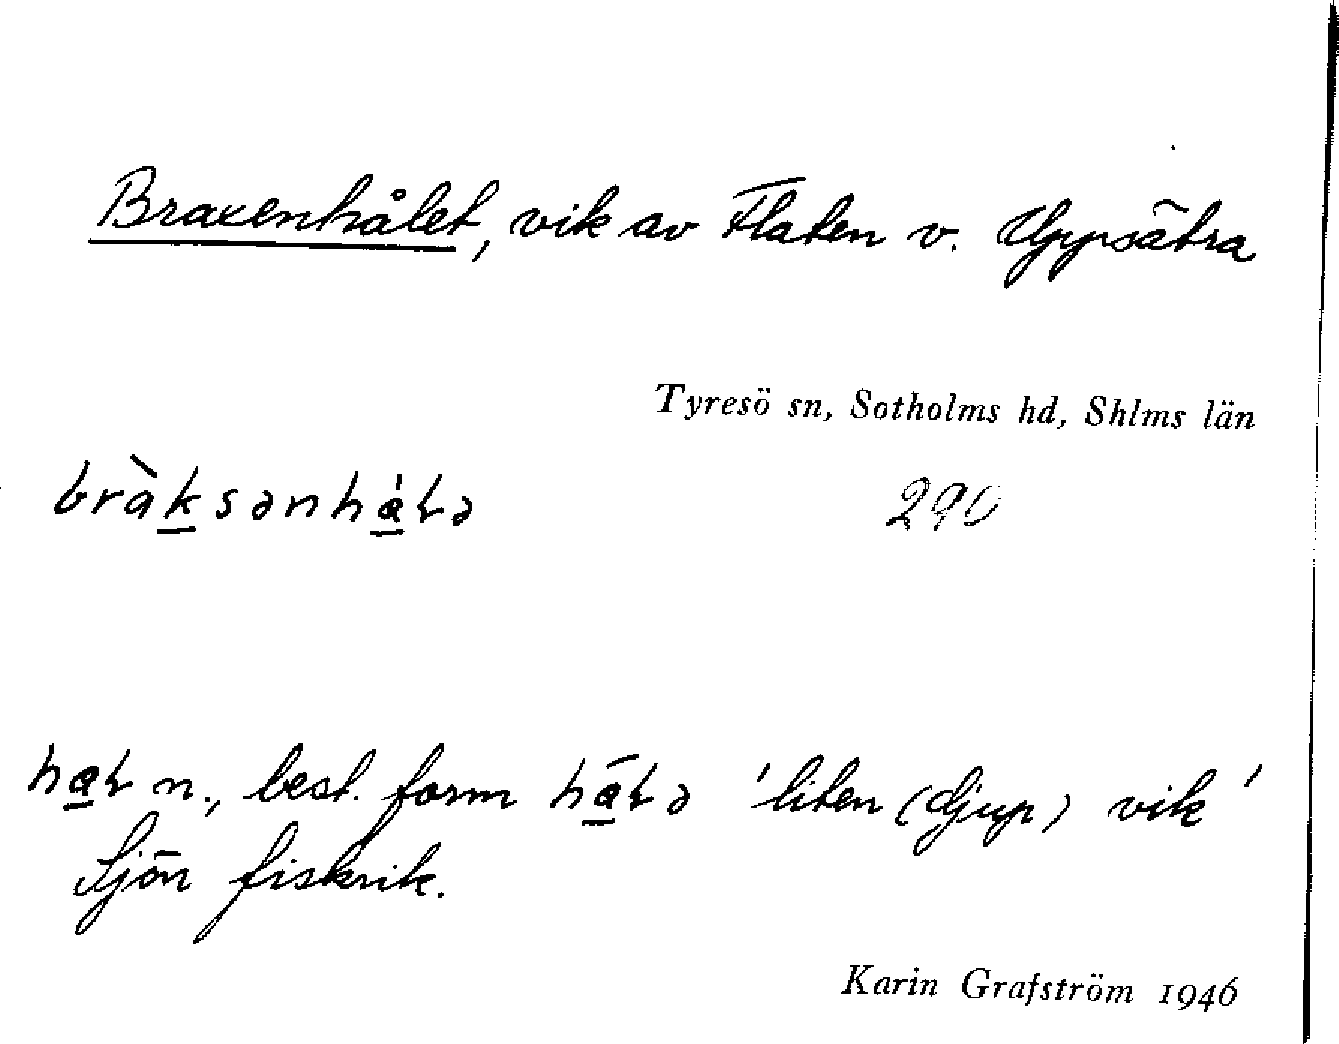 Braxenhålet, vik av Flaten v. Uppsätra
Tyresö sn, Sotholms hd, Shlms län
bràksənhàɫə
290
haɫ n., best. form hāɫə 'liten (djup) vik'
Sjön fiskrik.
Karin Grafström 1946